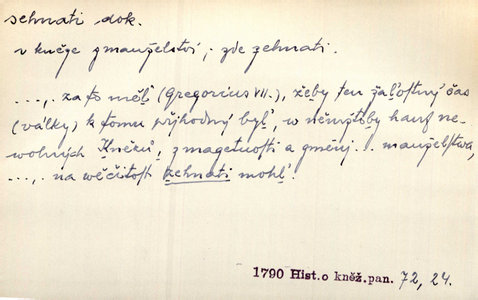 sehnati dok.
v kněze z manželství, zde zehnati.
..., za to měl (Gregorius VII.), žeby ten žalostný čas
(války) k tomu příhodný byl, w němžtoby hauf ne-
wolných Kněžů, z magetnosti a gměnj. manželstwa,
..., na wěčitost zehnati mohl.
1790 Hist. o kněž. pan. 72, 24.